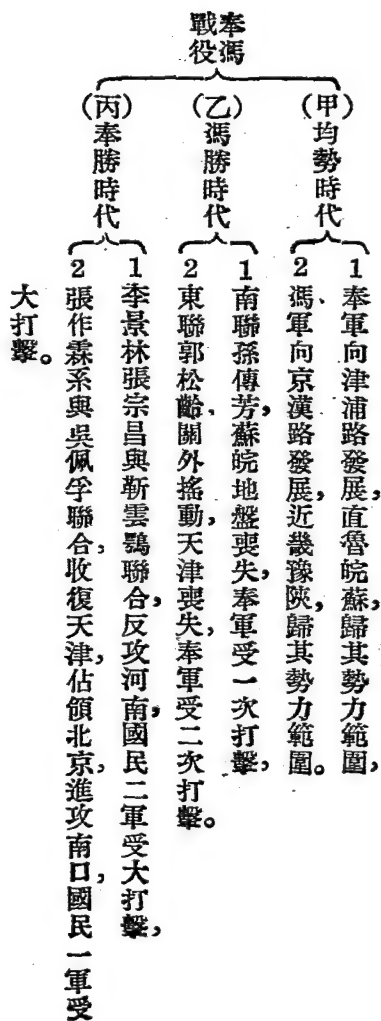 奉馮
戰役
(甲)均勢時代
1奉軍向津浦路發展,直魯皖蘇,歸其勢力範圍,
2馮軍向京漢路發展,近畿豫陝,歸其勢力範圍。
(乙)馮勝時代
1南聯孫傳芳,蘇皖地盤喪失,奉軍受一次打擊,
2東聯郭松齡,關外搖動,天津喪失,奉軍受二次打擊。
(丙)奉勝時代
1李景林張宗昌與靳雲鶚聯合,反攻河南,國民二軍受大打擊,
2張作霖系與吳佩孚聯合,收復天津,佔領北京,進攻南口,國民一軍受
大打擊。